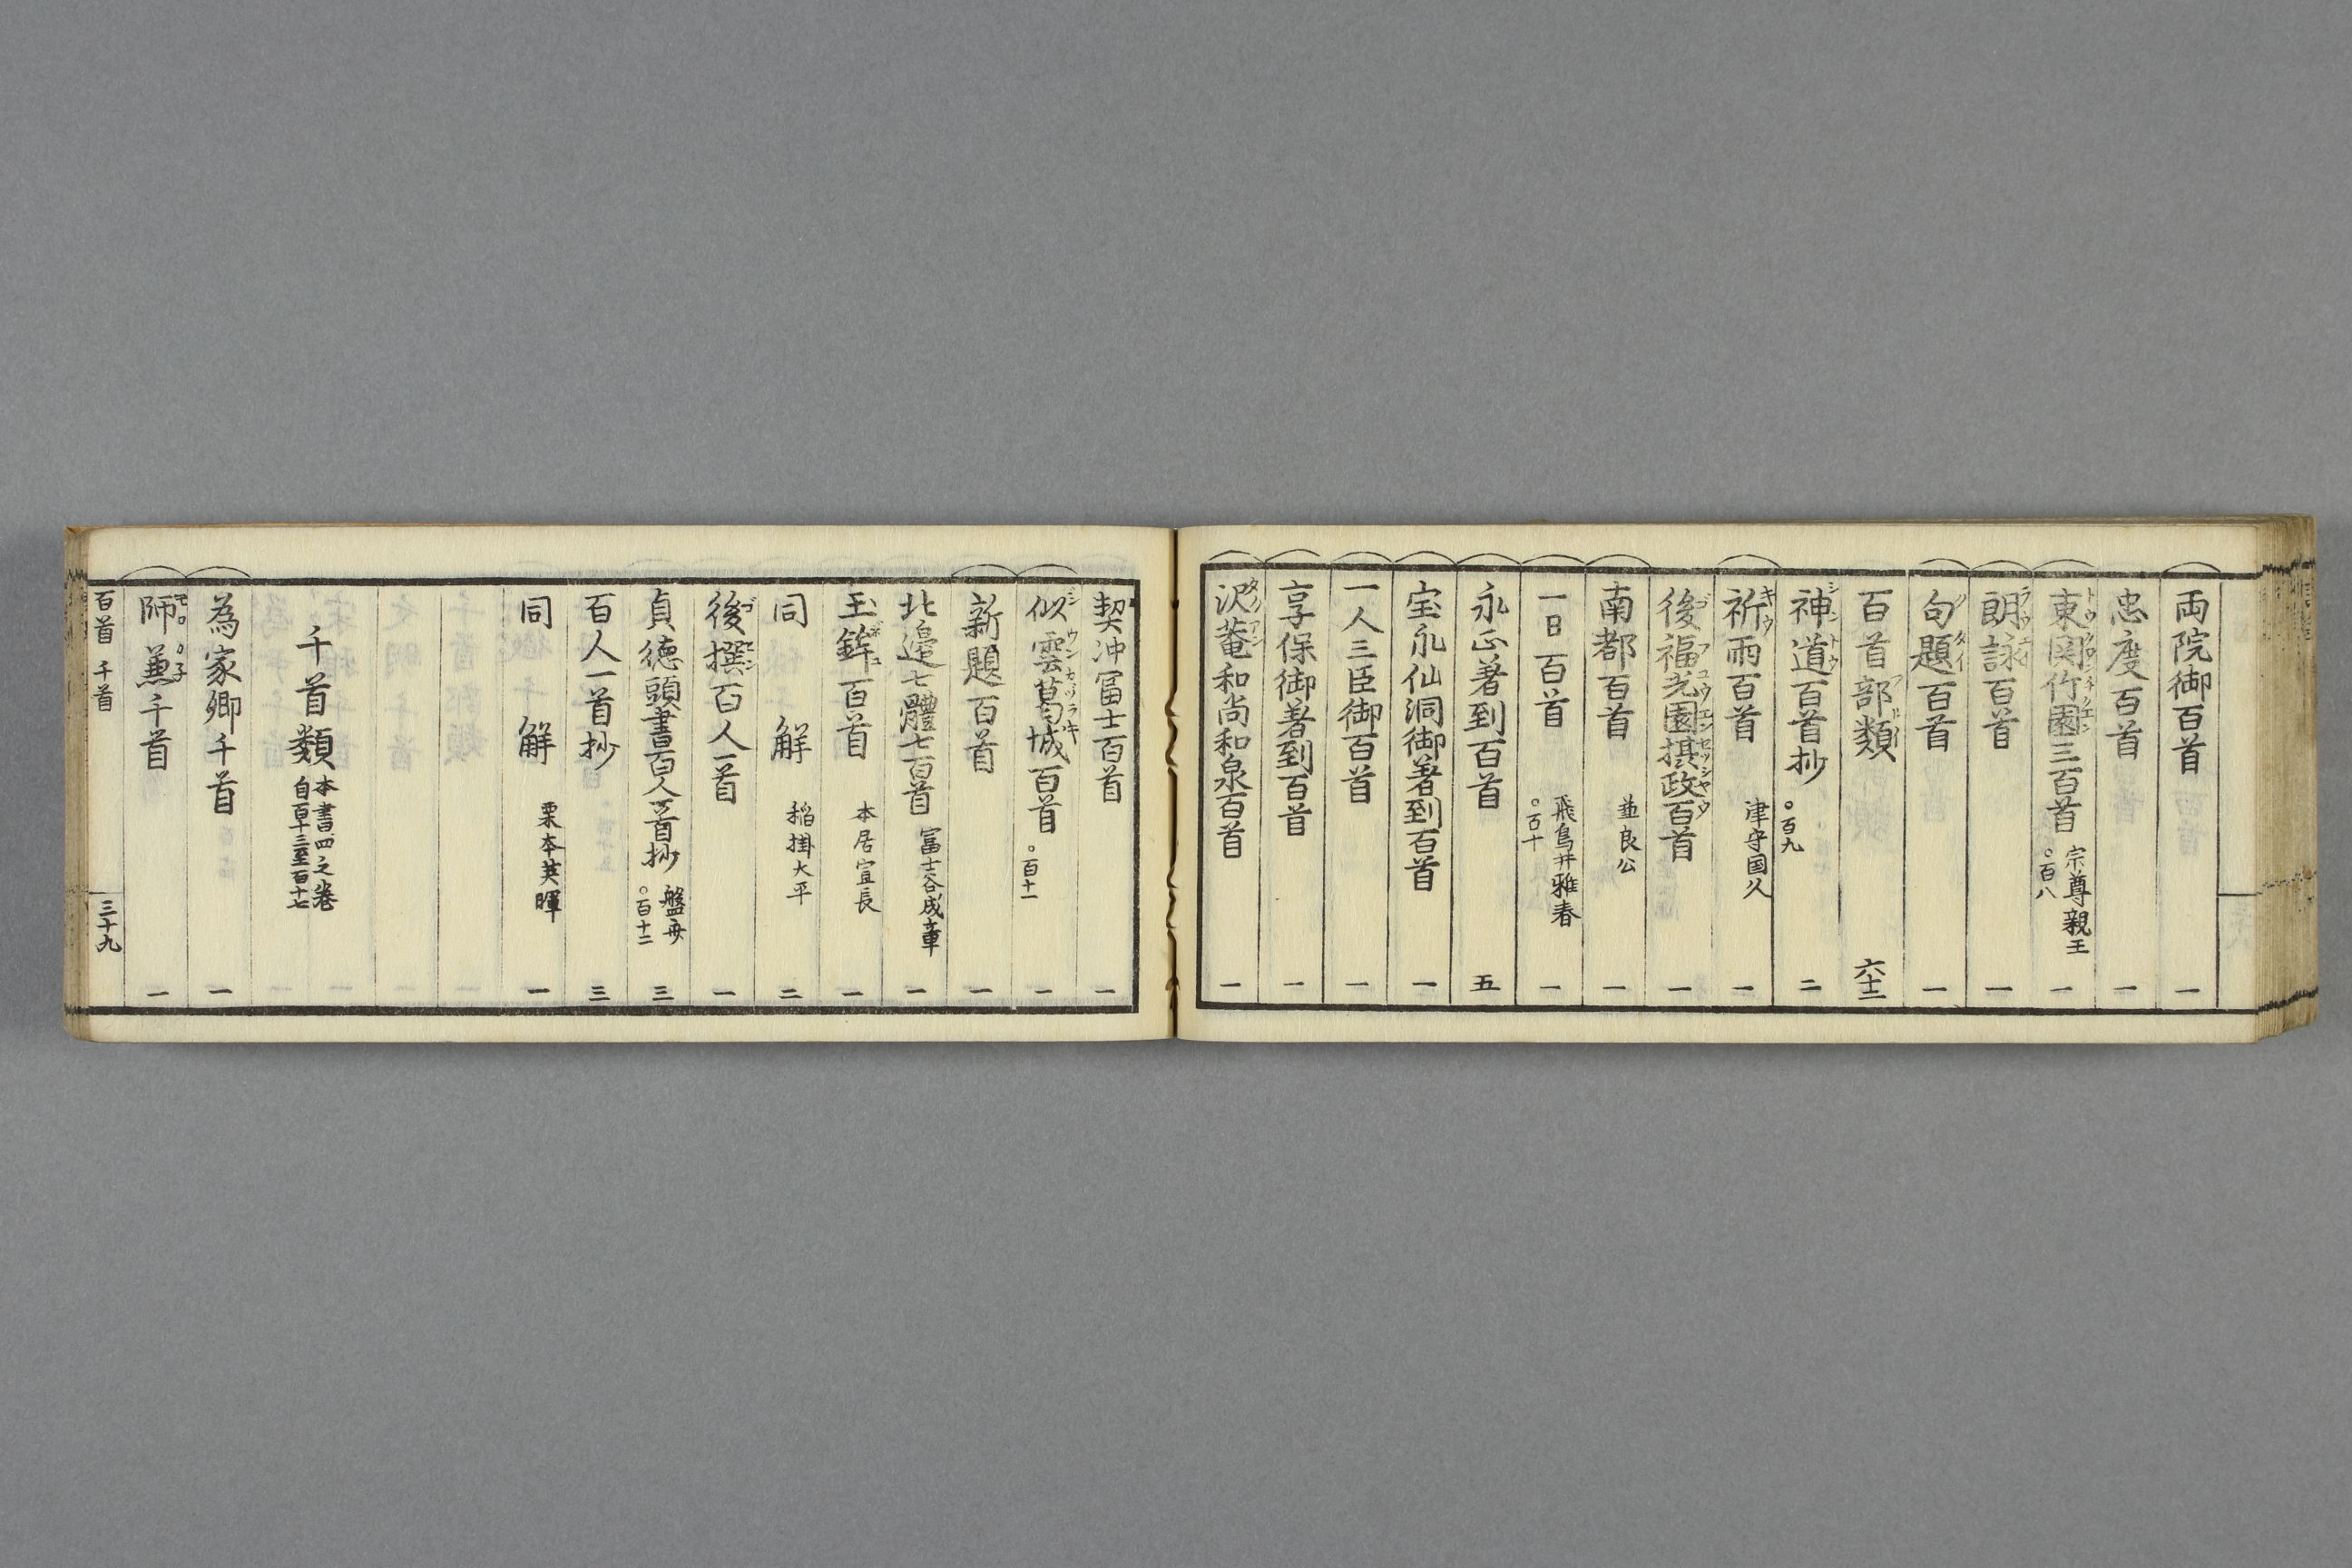 両院御百首 一
忠度百首 一
東関竹園三百首 宗尊親王 ○百八 一
朗詠百首 一
句題百首 一
百首部類 六十二
神道百首抄 ○百九 二
祈雨百首 津守国久 一
後福光園摂政百首 一
南都百首 兼良公 一
一日百首 飛鳥井雅春 ○百十 一
永正著到百首 五
宝永仙洞御著到百首 一
一人三臣御百首 一
享保御著到百首 一
沢菴和尚和泉百首 一
契沖冨士百首 一
似雲葛城百首 ○百十一 一
新題百首 一
北邉七體七百首 冨士谷成章 一
玉鉾百首 本居宣長 一
同 解 稲掛大平 二
後撰百人一首 一
貞徳頭書百人一首抄 盤斎 ○百十二 三
百人一首抄 三
同 解 栗本英暉 一
千首類 本書四之巻 自百十三至百十七
為家卿千首 一
師兼千首 一
百首 千首 三十九